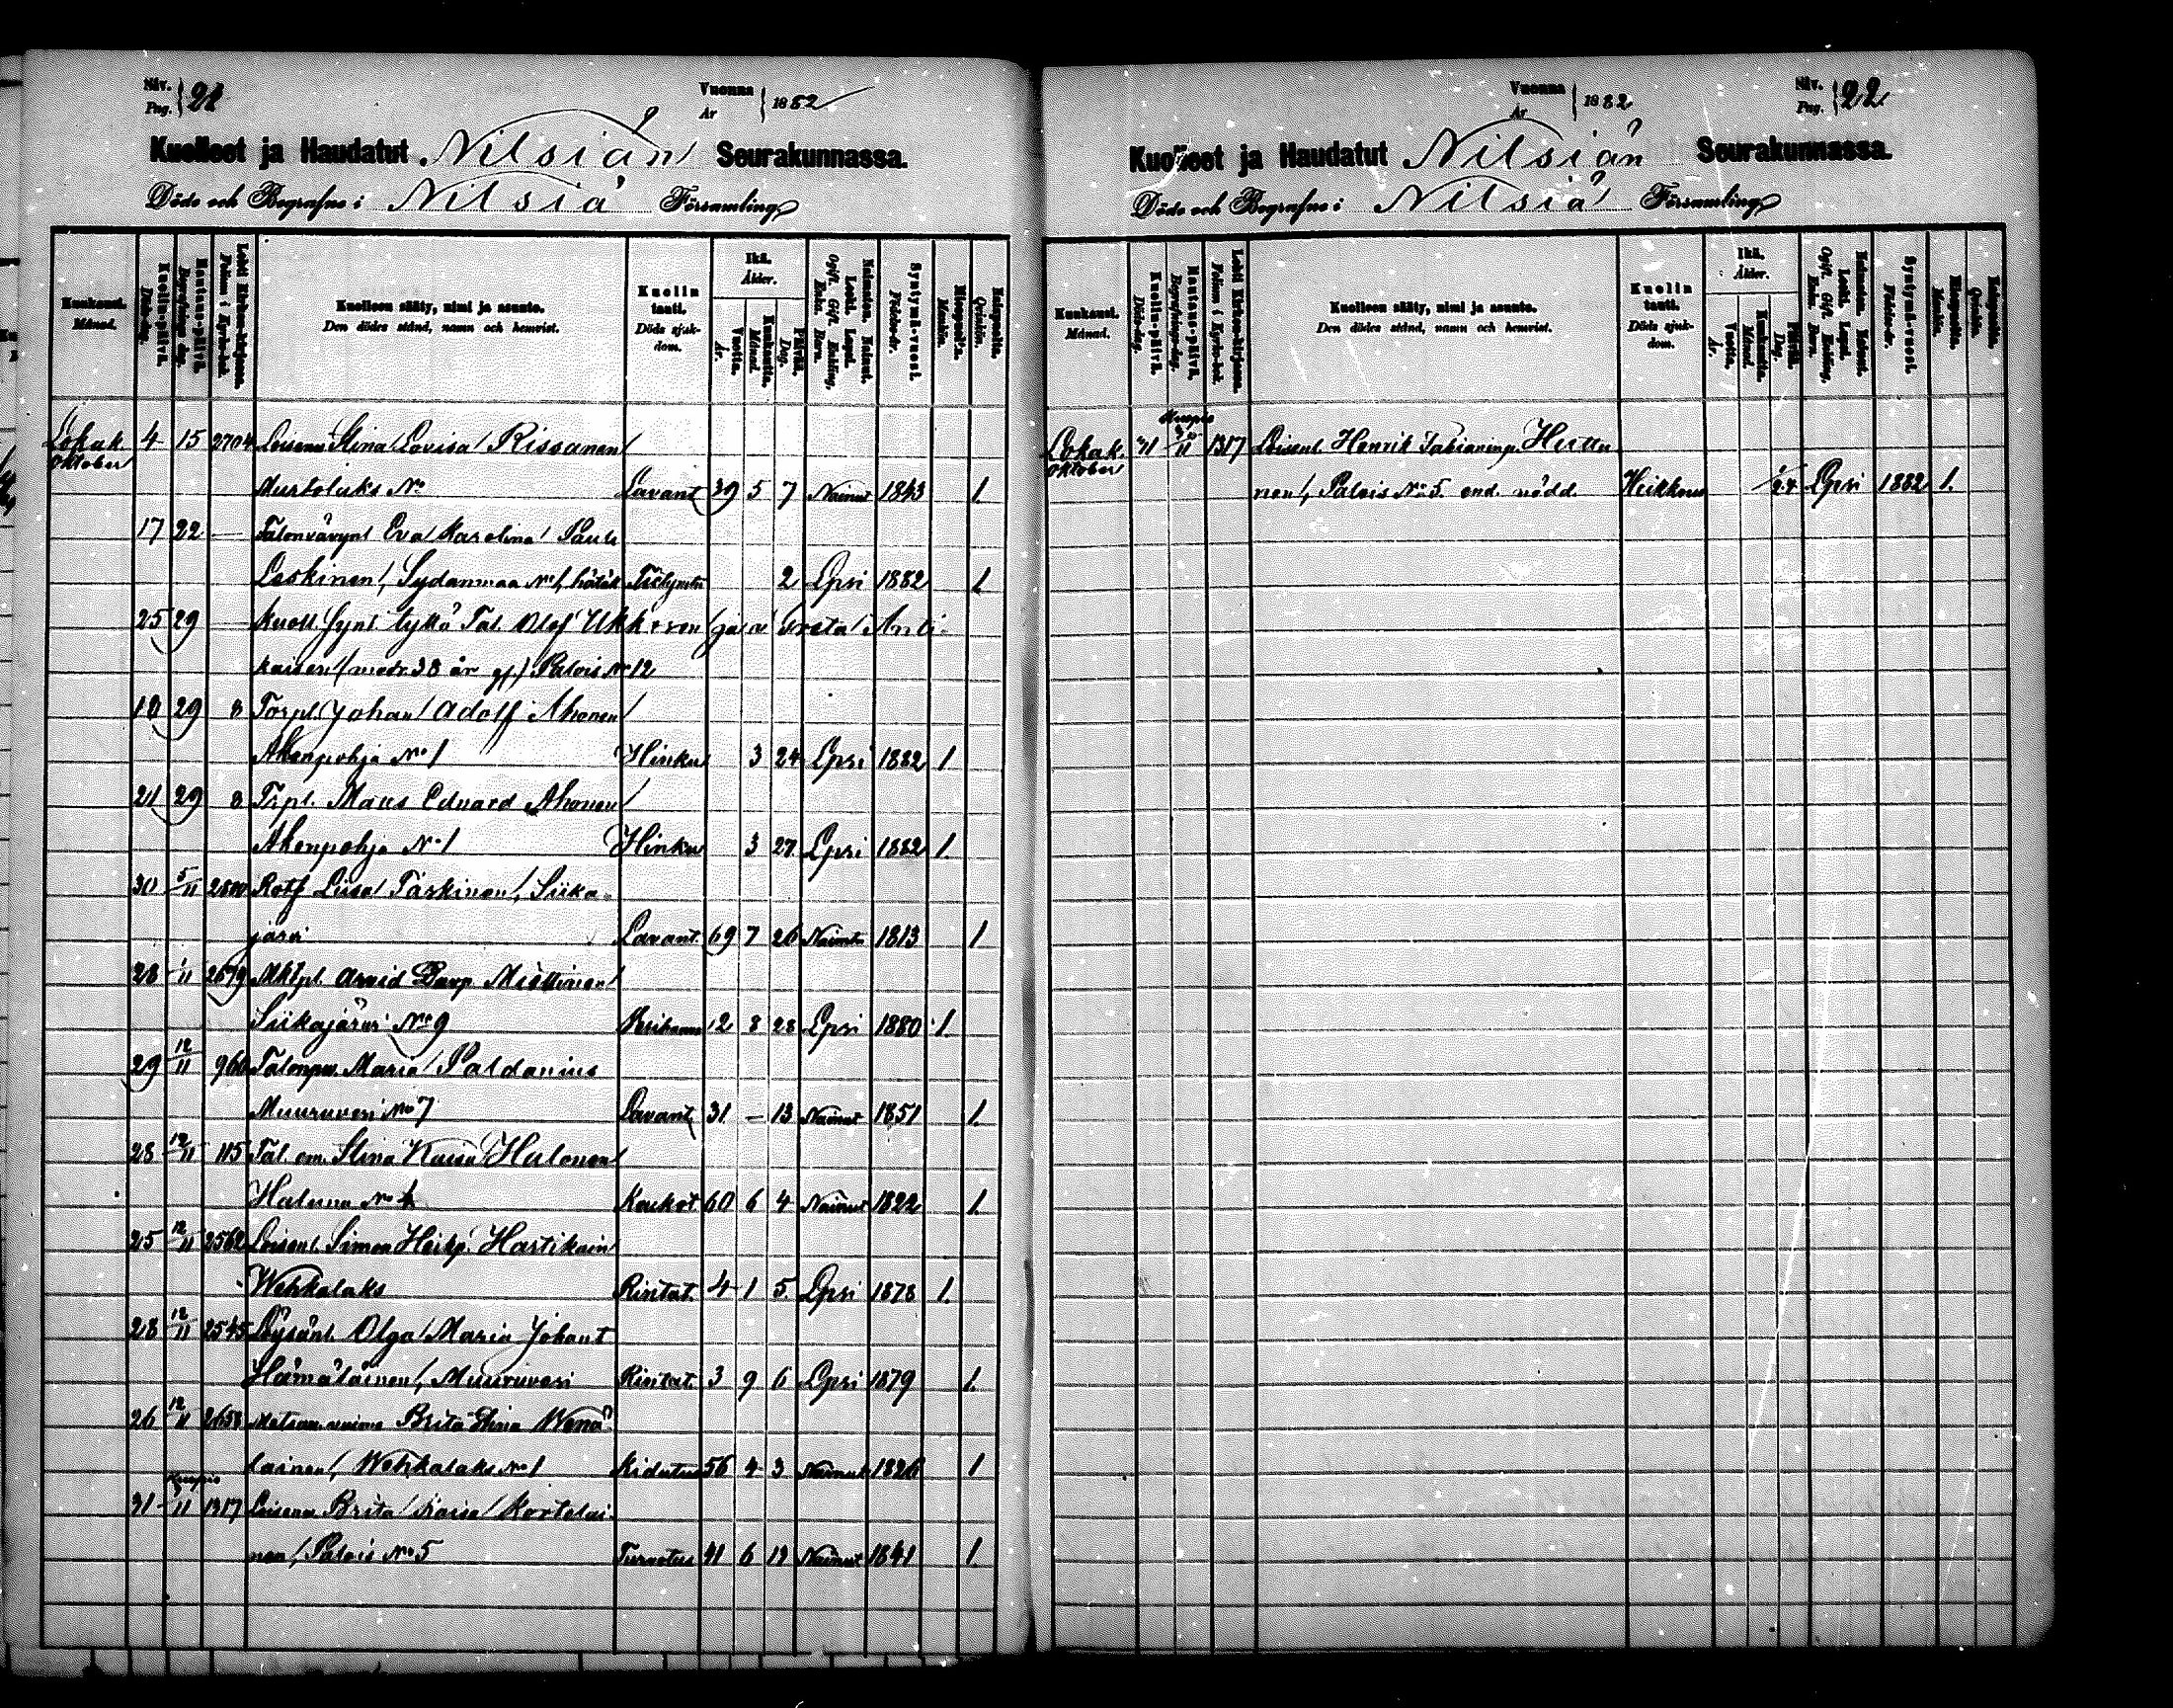 Siv. Pag. 21
Vuonna År 1882
Kuolleet ja Haudatut Nilsiän Seurakunnassa.
Döde och Begrafne i Nilsiä Församling
Kuukausi. Månad.
Kuolin-päivä. Döds-dag.
Hautaus-päivä. Begrafnings-dag.
Lehti Kirkon-kirjassa. Folium i Kyrko-bok.
Kuolleen sääty, nimi ja asunto.
Den dödes stånd, namn och hemvist.
Kuolin tauti. Döds sjuk-dom.
Ikä. Ålder.
Vuotta. År.
Kuukautta. Månad.
Päivää. Dag.
Naimaton. Nainut. Leski. Lapsi.
Ogift. Gift. Enkling, Enka. Barn.
Syntymä-vuosi. Födelse-år.
Miespuolta. Mankön.
Vaimopuolta. Qvinkön.
Lokak. 4 15 2704 Loisenv. Stina Lovisa Rissanen
Oktober
Murtolaks No Lavant. 39 5 7 Nainut 1843 1
17 22 — Talonvävynl Eva Karolina Paul.
Leskinen, Sydänmaa No 1, hätäk. 2 Lpsi 1882 1
25 29 Kuoll. synt. tyttö Tal. Olof Ukkosen ja Greta Anti-
kaisen (modr. 38 år gf.) Palois No 12
18 29 8 Torpl. Johan Adolf Ahonen
Ahenpohja No 1 Hinku 3 24 Lpsi 1882 1
21 29 8 Trpl. Maus Eduard Ahonen
Ahenpohja No 1 Hinku 3 27 Lpsi 1882 1.
30 5/11 2800 Rotf Liisa Taskinen, Siika-
järvi Lavant. 69 7 26 Naimt. 1813 1
28 1/11 2679 Mktpl. Arvid Davp. Miettinen
Siikajärvi No 9 2 8 28 Lpsi 1880 1
29 12/11 966 Talonpv. Maria Paldanius
Muuruvesi No 7 Lavant. 31 — 13 Nainut 1851 1.
28 12/11 115 Tal. em. Stina Kaisa Halonen
Haluna No 4 Koukot 60 6 4 Nainut 1822 1.
25 12/11 2562 Loisenl. Simon Heikp. Hartikain
Wehkalaks Rintat. 4 1 5 Lpsi 1878 1.
28 12/11 2545 Löysänl. Olga Maria Johant
Hämäläinen, Muuruvesi Rintat. 3 9 6 Lpsi 1879 1.
26 12/11 2658 Brita Stina Wenä-
läinen, Wehkalaks No 1 Kidutus 56 4 3 Nainut 1826 1
Kuopio
31 11 1317 Loisenv. Brita Kaisa Kortelai-
nen, Palois No 5 Turvotus 41 6 19 Nainut 1841 1
Vuonna År 1882
Siv. Pag. 22
Kuolleet ja Haudatut Nilsiän Seurakunnassa.
Döde och Begrafne i Nilsiä Församling
Kuukausi. Månad.
Kuolin-päivä. Döds-dag.
Hautaus-päivä. Begrafnings-dag.
Lehti Kirkon-kirjassa. Folium i Kyrko-bok.
Kuolleen sääty, nimi ja asunto.
Den dödes stånd, namn och hemvist.
Kuolin tauti. Döds sjuk-dom.
Ikä. Ålder.
Vuotta. År.
Kuukautta. Månad.
Päivää. Dag.
Naimaton. Nainut. Leski. Lapsi.
Ogift. Gift. Enkling, Enka. Barn.
Syntymä-vuosi. Födelse-år.
Miespuolta. Mankön.
Vaimopuolta. Qvinkön.
Kuopio
Lokak. 31 11 1317 Loisenl. Henrik Fabianinp. Huttu-
Oktober
nen, Palois No 5. end. nödd. Heikkous 1/24 Lpsi 1882 1.